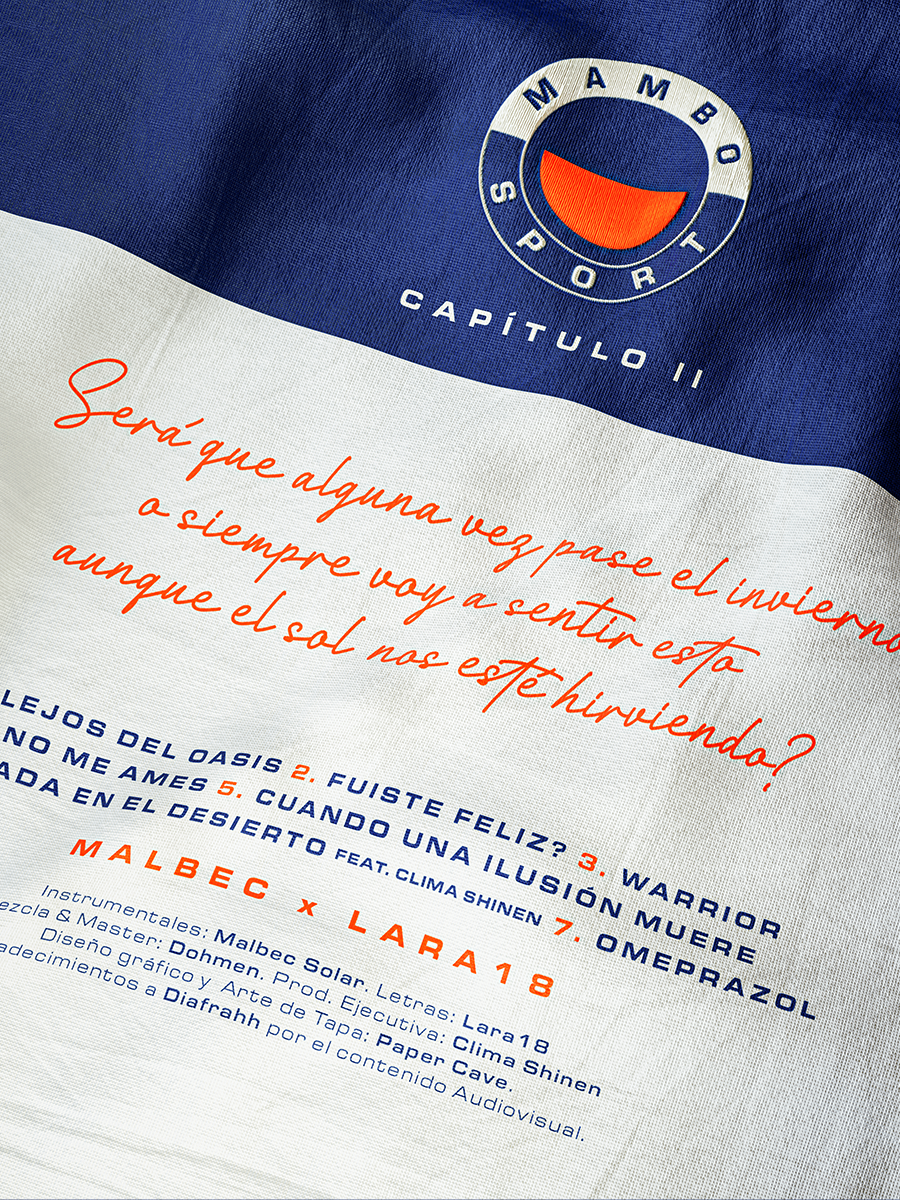 MAMBO
SPORT
CAPÍTULO II
Será que alguna vez pase el invierno
o siempre voy a sentir esto
aunque el sol nos esté hirviendo?
LEJOS DEL OASIS 2. FUISTE FELIZ? 3. WARRIOR
NO ME AMES 5. CUANDO UNA ILUSIÓN MUERE
ADA EN EL DESIERTO FEAT. CLIMA SHINEN 7. OMEPRAZOL
MALBEC x LARA18
Instrumentales: Malbec Solar. Letras: Lara18
ezcla & Master: Dohmen. Prod. Ejecutiva: Clima Shinen
Diseño gráfico y Arte de Tapa: Paper Cave.
adecimientos a Diafrahh por el contenido Audiovisual.